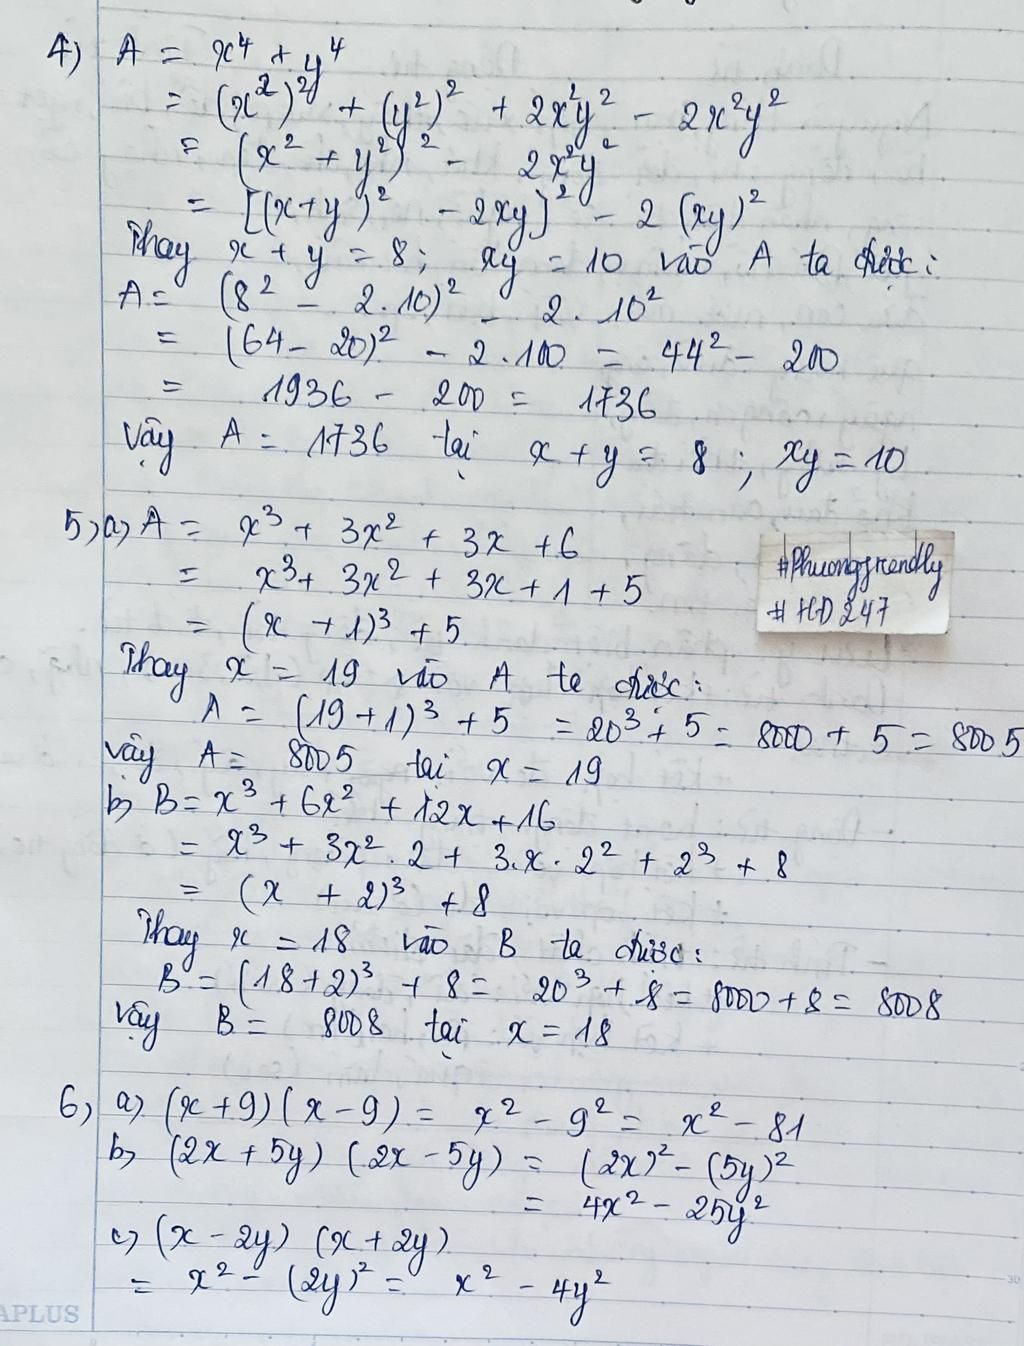 4) A = x⁴ + y⁴
= (x²)² + (y²)² + 2x²y² - 2x²y²
= (x² + y²)² - 2x²y²
= [(x+y)² - 2xy]² - 2(xy)²
Thay x + y = 8; xy = 10 vào A ta được:
A = (8² - 2.10)² - 2.10²
= (64 - 20)² - 2.100 = 44² - 200
= 1936 - 200 = 1736
Vậy A = 1736 tại x + y = 8; xy = 10
5, a, A = x³ + 3x² + 3x + 6
= x³ + 3x² + 3x + 1 + 5
= (x + 1)³ + 5
#Phuongfrendly
#HD247
Thay x = 19 vào A ta được:
A = (19+1)³ + 5 = 20³ + 5 = 8000 + 5 = 8005
Vậy A = 8005 tại x = 19
b, B = x³ + 6x² + 12x + 16
= x³ + 3x².2 + 3.x.2² + 2³ + 8
= (x + 2)³ + 8
Thay x = 18 vào B ta được:
B = (18+2)³ + 8 = 20³ + 8 = 8000 + 8 = 8008
Vậy B = 8008 tại x = 18
6, a, (x+9)(x-9) = x² - 9² = x² - 81
b, (2x+5y)(2x-5y) = (2x)² - (5y)²
= 4x² - 25y²
c, (x - 2y)(x + 2y)
= x² - (2y)² = x² - 4y²
APLUS
30